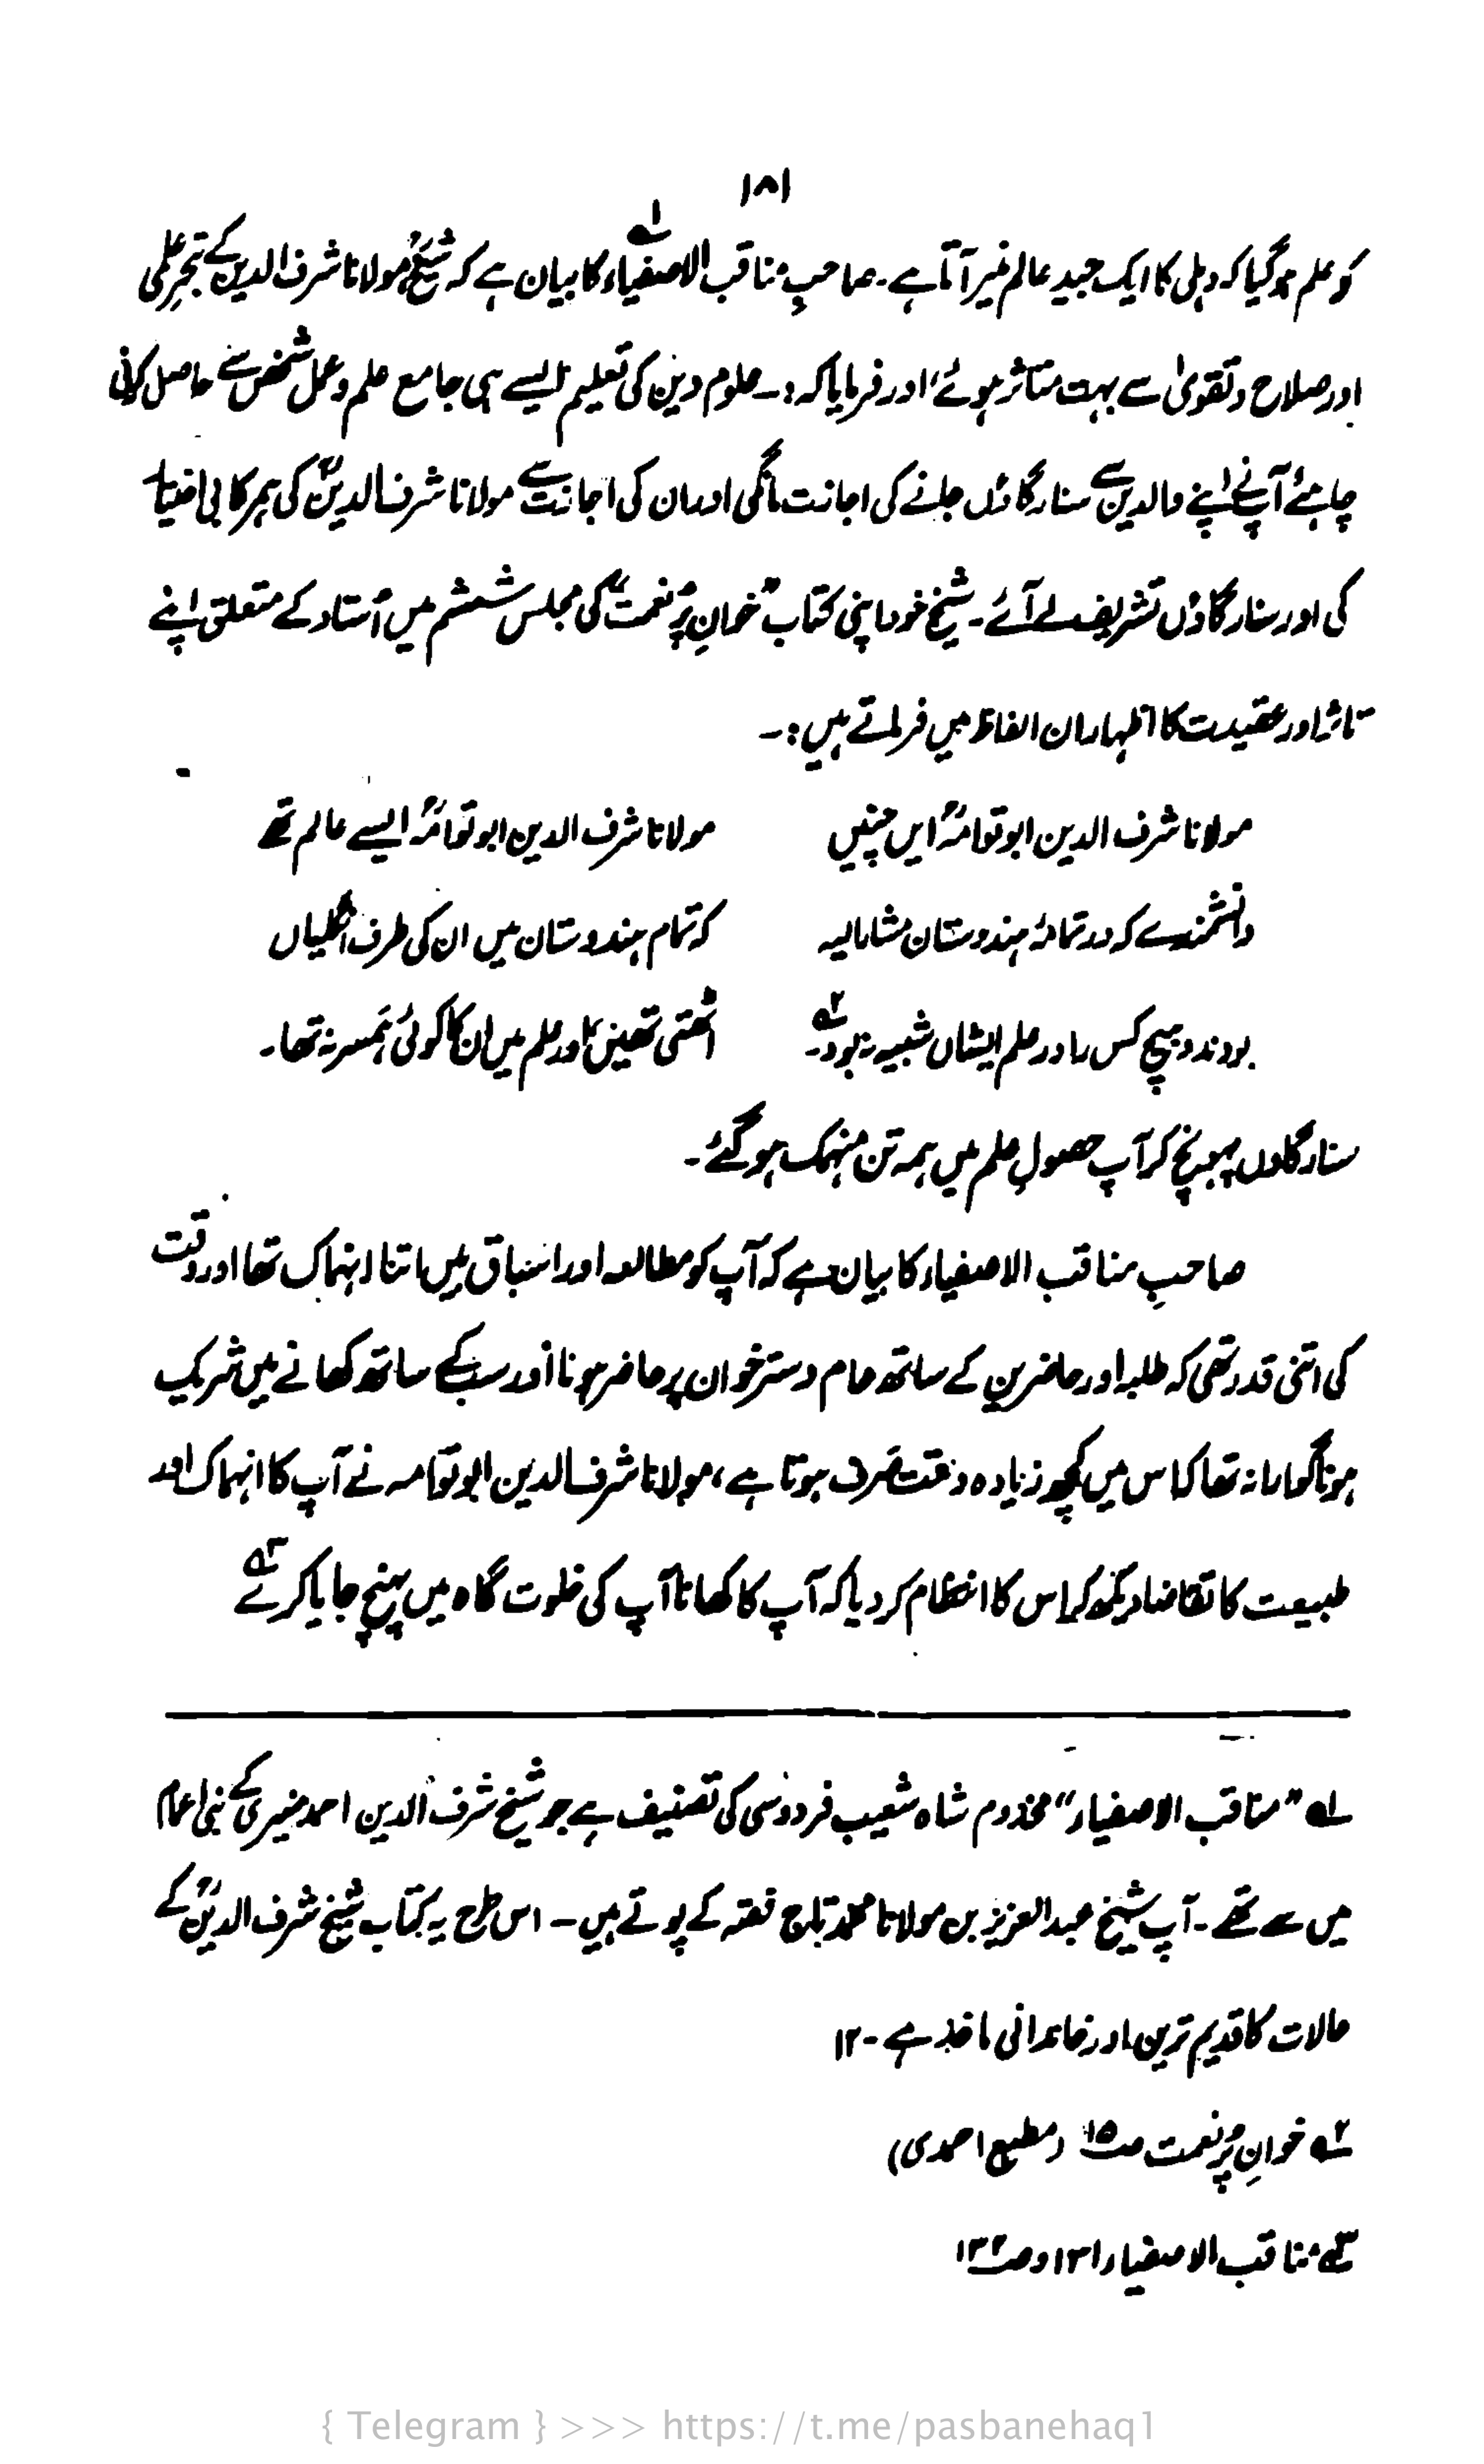 ۱۸۱
کو علم ہو گیا کہ دہلی کا ایک جید عالم منیر آتا ہے۔ صاحبِ مناقب الاصفیاء لہ کا بیان ہے کہ شیخؒ مولانا شرف الدین کے تبحرِ علمی
اور صلاح و تقویٰ سے بہت متاثر ہوئے، اور فرمایا کہ :۔ علوم دین کی تعلیم ایسے ہی جامع علم و عمل شخص سے حاصل کرنی
چاہئے آپ نے اپنے والدین سے سنارگاؤں جانے کی اجازت مانگی اور ان کی اجازت سے مولانا شرف الدینؒ کی ہمرکابی اختیار
کی اور سنارگاؤں تشریف لے آئے۔ شیخ خود اپنی کتاب "خوانِ پُر نعمت" کی مجلس ششم میں اُستاد کے متعلق اپنے
تاثر اور عقیدت کا اظہار ان الفاظ میں فرماتے ہیں :۔
مولانا شرف الدین ابوتوامہؒ ایں چنیں مولانا شرف الدین ابوتوامہؒ ایسے عالم تھے
دانشمندے کہ در تمامۂ ہندوستان مشارالیہ کہ تمام ہندوستان میں ان کی طرف انگلیاں
بودند و ہیچ کس را در علم ایشاں شبیہ نہ بود۔ ۲ہ اٹھتی تھیں اور علم میں ان کا کوئی ہمسر نہ تھا۔
سنارگاوں پہونچ کر آپ حصولِ علم میں ہمہ تن منہمک ہو گئے۔
صاحبِ مناقب الاصفیاء کا بیان ہے کہ آپ کو مطالعہ اور اسباق میں اتنا انہماک تھا اور وقت
کی اتنی قدر تھی کہ طلبہ اور حاضرین کے ساتھ عام دسترخوان پر حاضر ہونا اور سب کے ساتھ کھانے میں شریک
ہونا گوارا نہ تھا کہ اس میں کچھ زیادہ وقت صَرف ہوتا ہے، مولانا شرف الدین ابوتوامہ نے آپ کا انہماک اور
طبیعت کا تقاضا دیکھ کر اس کا انتظام کر دیا کہ آپ کا کھانا آپ کی خلوت گاہ میں پہنچ جایا کرے ۳ہ
لہ "مناقب الاصفیاء" مخدوم شاہ شعیب فردوسی کی تصنیف ہے جو شیخ شرف الدین احمد منیری کے بنی اعمام
میں سے تھے۔ آپ شیخ عبدالعزیز بن مولانا محمد تاج فقہ کے پوتے ہیں۔ اس طرح یہ کتاب شیخ شرف الدینؒ کے
حالات کا قدیم ترین اور خاندانی ماخذ ہے۔ ۱۲
۲ہ خوانِ پُر نعمت ص۱۵ (مطبع احمدی)
۳ہ مناقب الاصفیاء ۱۳۱ و ص۱۳۲
{ Telegram } >>> https://t.me/pasbanehaq1